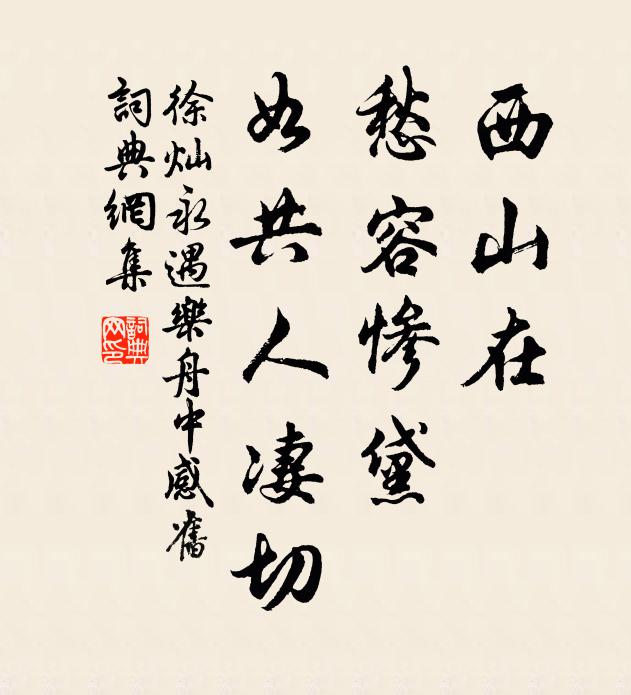 西山在
愁容慘黛
如共人淒切
徐灿永遇樂舟中感舊
詞典網集
詞典
网印